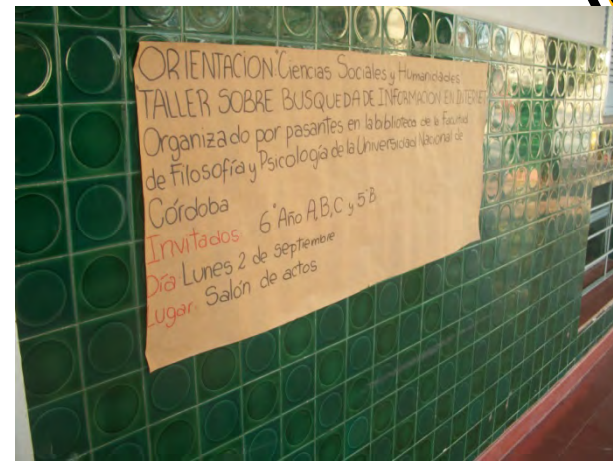 ORIENTACION "Ciencias Sociales y Humanidades
TALLER SOBRE BUSQUEDA DE INFORMACION EN INTERNET
Organizado por pasantes en la biblioteca de la Facultad
de Filosofía y Psicología de la Universidad Nacional de
Córdoba
Invitados 6° Año A, B, C y 5° B
Día Lunes 2 de septiembre
Lugar. Salón de actos